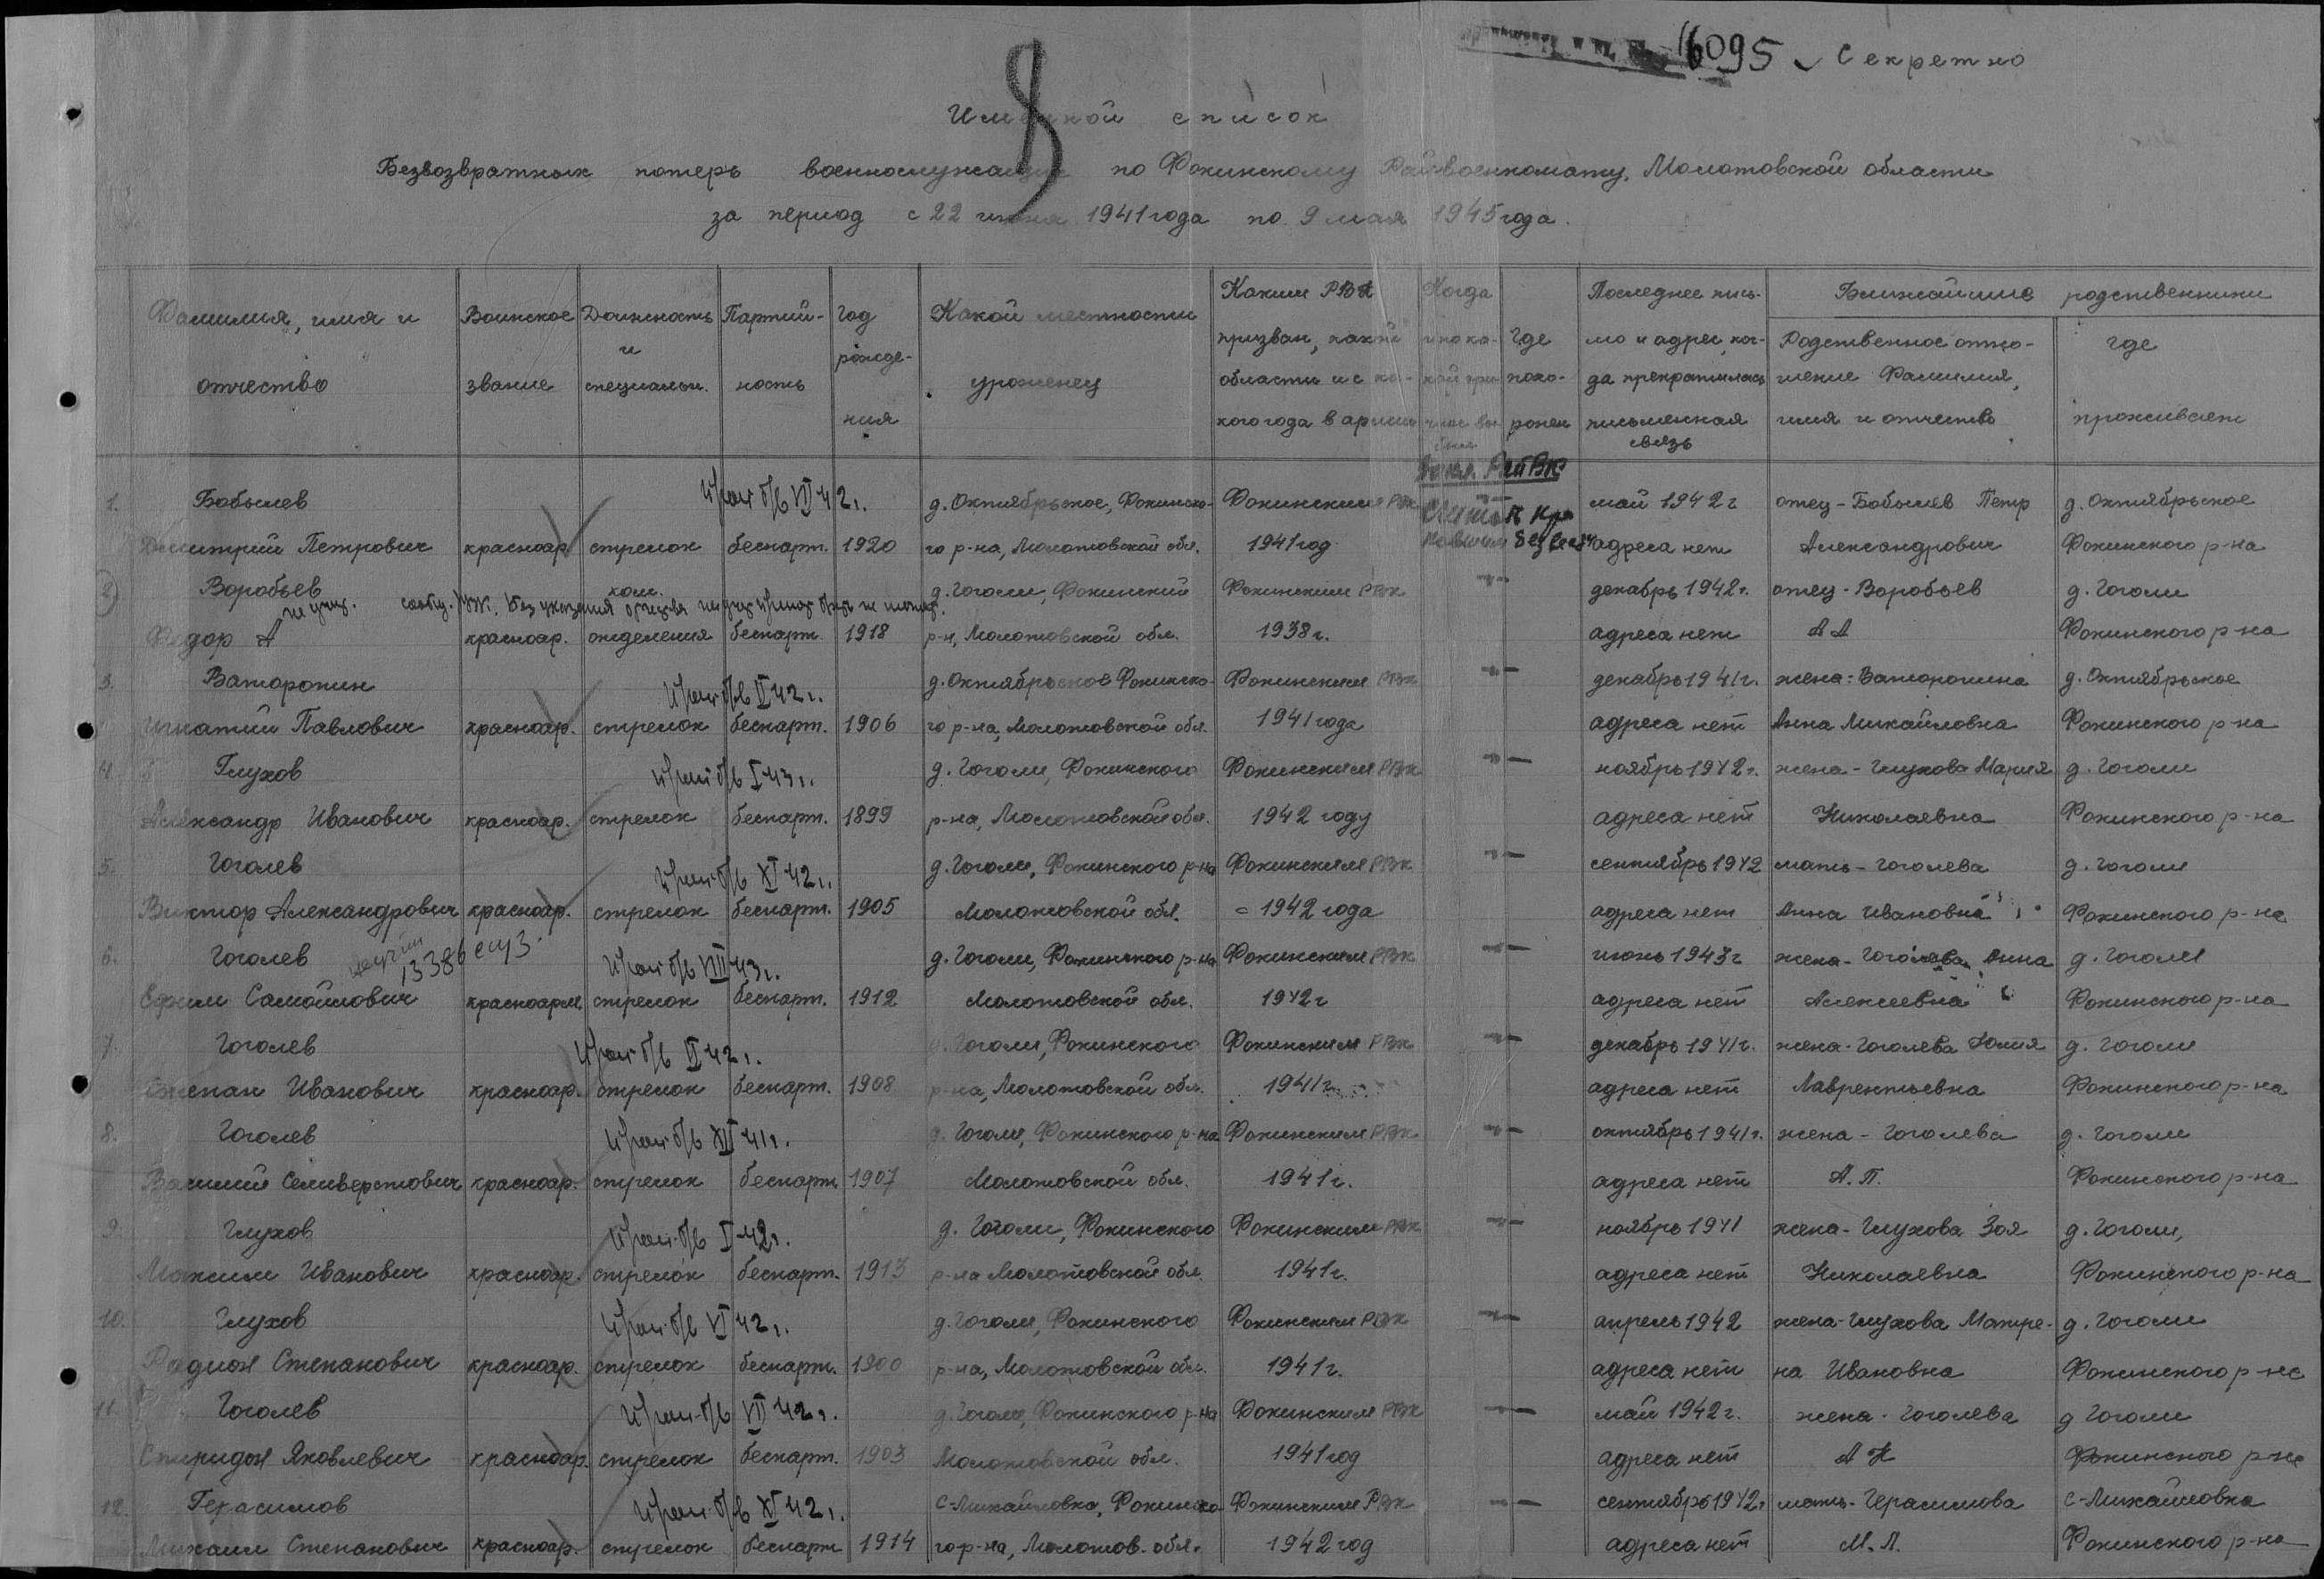 6095 Секретно
8
Именной список
Безвозвратных потерь военнослужащих по Фокинскому Райвоенкомату, Молотовской области
за период с 22 июня 1941 года по 9 мая 1945 года.
Фамилия, имя и отчество | Воинское звание | Должность и специальн. | Партий-ность | Год рожде-ния | Какой местности уроженец | Каким РВК призван, какой области и с ка-кого года в армии | Когда и по ка-кой при-чине вы-был | Где похо-ронен | Последнее пись-мо и адрес, ког-да прекратилась письменная связь | Ближайшие родственники
Родственное отно-шение Фамилия, имя и отчество | где проживает
РайВК
1. Бобылев б/в VII 42 г. д. Октябрьское, Фокинско- Фокинским РВК май 1942 г отец - Бобылев Петр д. Октябрьское
Дмитрий Петрович красноар. стрелок беспарт. 1920 го р-на, Молотовской обл. 1941 год без вести адреса нет Александрович Фокинского р-на
2 Воробьев ком. д. Гоголи, Фокинский Фокинским РВК -"- декабрь 1942 г. отец - Воробьев д. Гоголи
Федор А красноар. отделения беспарт. 1918 р-н, Молотовской обл. 1938 г. адреса нет А А Фокинского р-на
3. Ваторопин б/в II 42 г. д. Октябрьское Фокинско- Фокинским РВК -"- декабрь 1941 г. жена - Ваторопина д. Октябрьское
Игнатий Павлович красноар. стрелок беспарт. 1906 го р-на, Молотовской обл. 1941 года адреса нет Анна Михайловна Фокинского р-на
4. Глухов б/в I 43 г. д. Гоголи, Фокинского Фокинским РВК -"- ноябрь 1942 г. жена - Глухова Мария д. Гоголи
Александр Иванович красноар. стрелок беспарт. 1899 р-на, Молотовской обл. 1942 году адреса нет Николаевна Фокинского р-на
5. Гоголев б/в XI 42 г. д. Гоголи, Фокинского р-на Фокинским РВК -"- сентябрь 1942 мать - Гоголева д. Гоголи
Виктор Александрович красноар. стрелок беспарт. 1905 Молотовской обл. 1942 года адреса нет Анна Ивановна Фокинского р-на
6. Гоголев 13386 б/в VIII 43 г. д. Гоголи, Фокинского р-на Фокинским РВК -"- июнь 1943 г жена - Гоголева Анна д. Гоголи
Ефим Самойлович красноарм. стрелок беспарт. 1912 Молотовской обл. 1942 г адреса нет Алексеевна Фокинского р-на
7. Гоголев б/в II 42 г. д. Гоголи, Фокинского Фокинским РВК -"- декабрь 1941 г. жена - Гоголева Юлия д. Гоголи
Степан Иванович красноар. стрелок беспарт. 1908 р-на, Молотовской обл. 1941 г. адреса нет Лаврентьевна Фокинского р-на
8. Гоголев б/в XII 41 г. д. Гоголи, Фокинского р-на Фокинским РВК -"- октябрь 1941 г. жена - Гоголева д. Гоголи
Василий Селиверстович красноар. стрелок беспарт. 1907 Молотовской обл. 1941 г. адреса нет А. П. Фокинского р-на
9. Глухов б/в I 42 г. д. Гоголи, Фокинского Фокинским РВК -"- ноябрь 1941 жена - Глухова Зоя д. Гоголи,
Максим Иванович красноар. стрелок беспарт. 1913 р-на Молотовской обл. 1941 г. адреса нет Николаевна Фокинского р-на
10. Глухов б/в VI 42 г. д. Гоголи, Фокинского Фокинским РВК -"- апрель 1942 жена - Глухова Матре- д. Гоголи
Радион Степанович красноар. стрелок беспарт. 1900 р-на, Молотовской обл. 1941 г. адреса нет на Ивановна Фокинского р-на
11. Гоголев б/в VII 42 г. д. Гоголи, Фокинского р-на Фокинским РВК -"- май 1942 г. жена - Гоголева д Гоголи
Спиридон Яковлевич красноар. стрелок беспарт. 1903 Молотовской обл. 1941 год адреса нет А Н Фокинского р-на
12. Герасимов б/в XI 42 г. с-Михайловка, Фокинско Фокинским РВК -"- сентябрь 1942 г мать - Герасимова с-Михайловка
Михаил Степанович красноар. стрелок беспарт 1914 го р-на, Молотов. обл. 1942 год адреса нет М. Л. Фокинского р-на